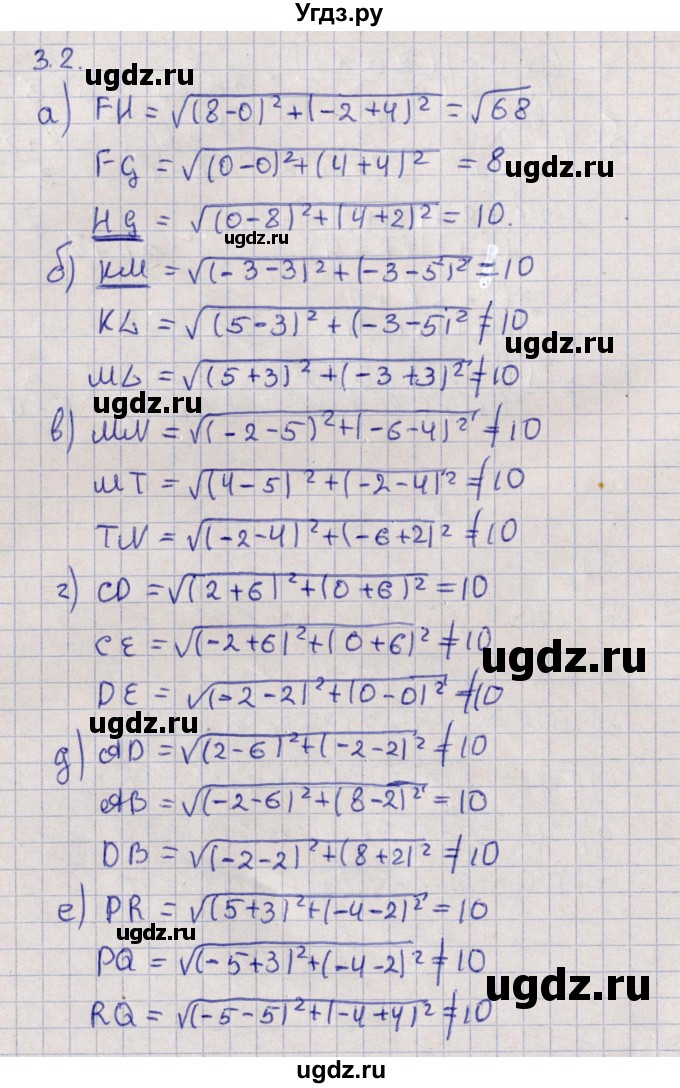 Угдз.ру
3.2.
ugdz.ru
а) FH = √(8-0)²+(-2+4)² = √68
FG = √(0-0)²+(4+4)² = 8
ugdz.ru
HG = √(0-8)²+(4+2)² = 10.
ugdz.ru
б) KM = √(-3-3)²+(-3-5)² = 10
KL = √(5-3)²+(-3-5)² ≠ 10
ugdz.ru
ML = √(5+3)²+(-3+3)² ≠ 10
ugdz.ru
в) MN = √(-2-5)²+(-6-4)² ≠ 10
MT = √(4-5)²+(-2-4)² ≠ 10
TN = √(-2-4)²+(-6+2)² ≠ 10
ugdz.ru
г) CD = √(2+6)²+(0+6)² = 10
CE = √(-2+6)²+(0+6)² ≠ 10
ugdz.ru
DE = √(-2-2)²+(0-0)² ≠ 10
ugdz.ru
д) AD = √(2-6)²+(-2-2)² ≠ 10
AB = √(-2-6)²+(8-2)² = 10
ugdz.ru
DB = √(-2-2)²+(8+2)² ≠ 10
е) PR = √(5+3)²+(-4-2)² = 10
ugdz.ru
PQ = √(-5+3)²+(-4-2)² ≠ 10
ugdz.ru
RQ = √(-5-5)²+(-4+4)² ≠ 10
ugdz.ru